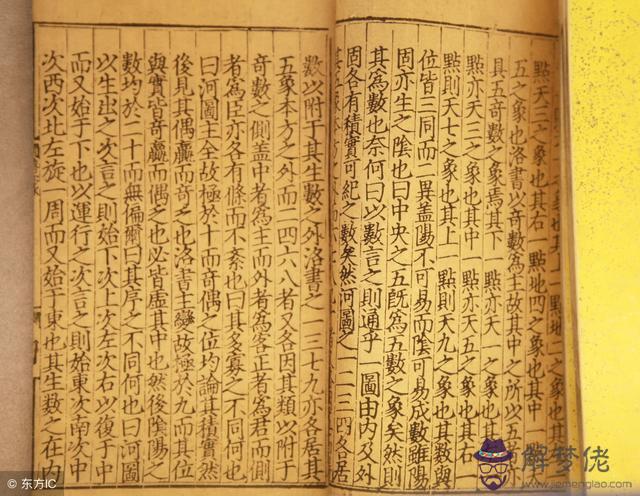 點天三之象也其右一點地四之象也其中
五之象也洛書以奇數為主故其中之所以為五者
具五奇數之象焉其下一點亦天一之象也其
點亦天三之象也其中一點亦天五之象也其右
點則天七之象也其上一點則天九之象也其數與
位皆三同而二異蓋陽不可易而陰可易成數雖陽
固亦生之陰也曰中央之五既為五數之象矣然則
其為數也奈何曰以數言之則通乎一圖由內及外
固各有積實可紀之數矣然河圖之一二三四各居
數以附于其生數之外洛書之一三七九亦各居其
五象本方之外而二四六八者又各因其類以附于
奇數之側蓋中者為主而外者為客正者為君而側
者為臣亦各有條而不紊也曰其多寡之不同何也
曰河圖主全故極於十而奇偶之位均論其積實然
後見其偶贏而奇乏也洛書主變故極於九而其位
與實皆奇贏而偶乏也必皆虛其中也然後陰陽之
數均於二十而無偏爾曰其序之不同何也曰河圖
以生出之次言之則始下次上次左次右以復于中
而又始于下也以運行之次言之則始東次南次中
次西次北左旋一周而又始于東也其生數之在內
© 東方IC
解梦佬
www.jiemenglao.com